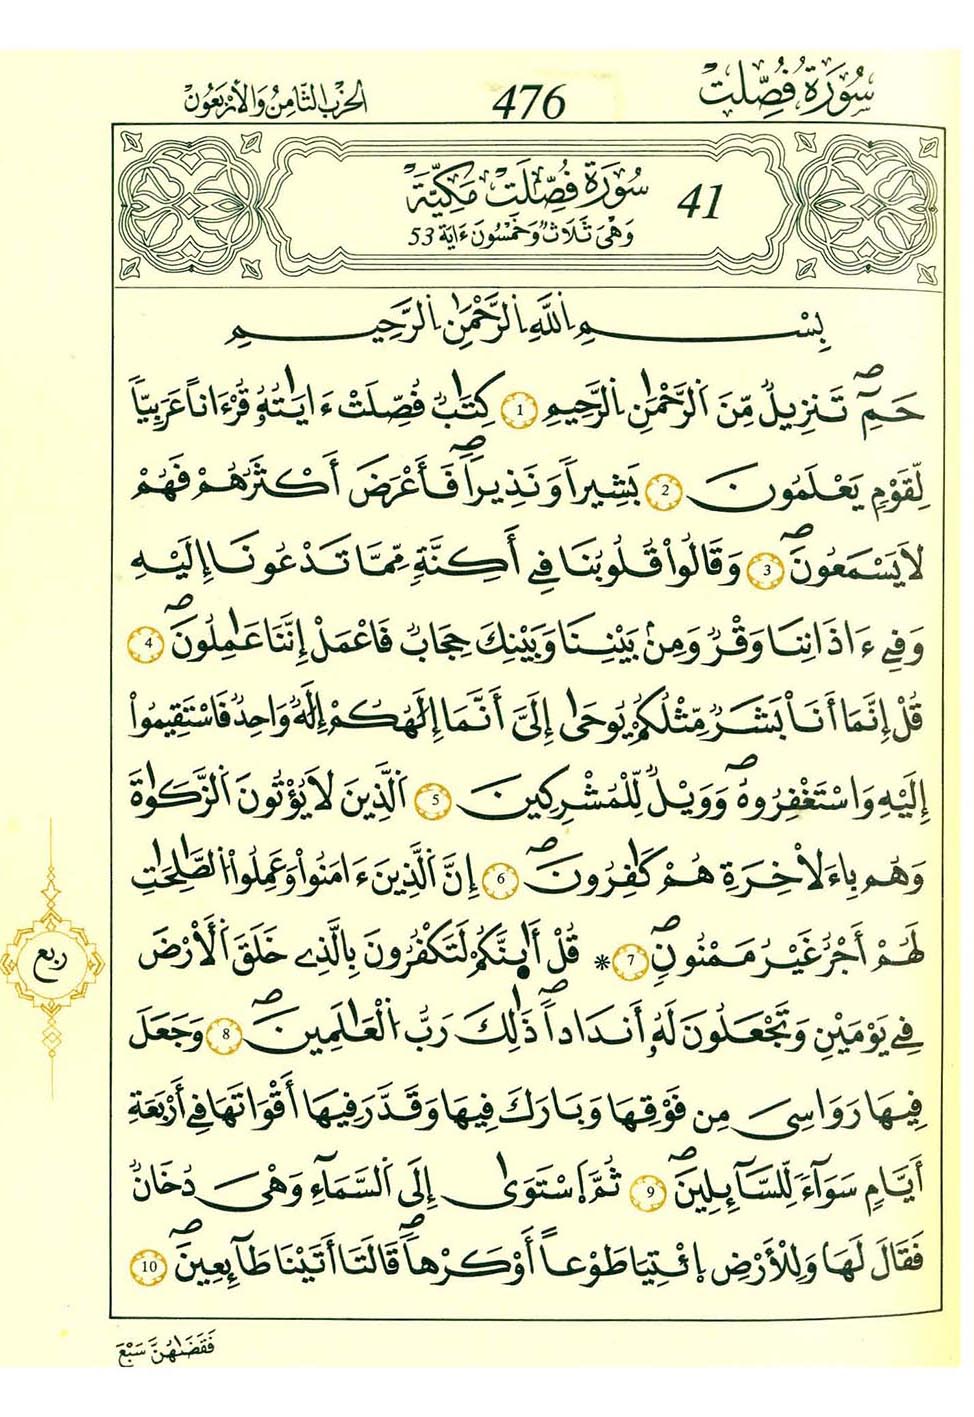 سُورَةُ فُصِّلَتْ
476
الحِزْبُ الثَّامِنُ وَالأَرْبَعُونَ
سُورَةُ فُصِّلَتْ مَكِّيَّة 41
وَهْىَ ثَلَاثٌ وَخَمْسُونَ ءَايَة 53
بِسْمِ اِللَّهِ اِلرَّحْمَٰنِ اِلرَّحِيمِ
حَمِٓ صۖ تَنزِيلٌ مِّنَ اَلرَّحْمَٰنِ اِلرَّحِيمِ 1 كِتَٰبٌ فُصِّلَتْ ءَايَٰتُهُۥ قُرْءَاناً عَرَبِيّاً
لِّقَوْمٍ يَعْلَمُونَ 2 بَشِيراً وَنَذِيراًۖ فَأَعْرَضَ أَكْثَرُهُمْ فَهُمْ
لَا يَسْمَعُونَۖ 3 وَقَالُواْ قُلُوبُنَا فِےٓ أَكِنَّةٍ مِّمَّا تَدْعُونَا إِلَيْهِ
وَفِےٓ ءَاذَانِنَا وَقْرٌ وَمِنۢ بَيْنِنَا وَبَيْنِكَ حِجَابٌ فَاعْمَلْ إِنَّنَا عَٰمِلُونَۖ 4
قُلْ إِنَّمَا أَنَا بَشَرٌ مِّثْلُكُمْ يُوحَىٰ إِلَىَّ أَنَّمَا إِلَٰهُكُمْ إِلَٰهٌ وَاحِدٌ فَاسْتَقِيمُواْ
إِلَيْهِ وَاسْتَغْفِرُوهُۖ وَوَيْلٌ لِّلْمُشْرِكِينَ 5 اَلَّذِينَ لَا يُؤْتُونَ اَلزَّكَوٰةَ
وَهُم بِاءَلَاخِرَةِ هُمْ كَٰفِرُونَۖ 6 إِنَّ اَلَّذِينَ ءَامَنُواْ وَعَمِلُواْ اُلصَّٰلِحَٰتِ
لَهُمْ أَجْرٌ غَيْرُ مَمْنُونٍۖ 7 * قُلْ أَئِنَّكُمْ لَتَكْفُرُونَ بِالَّذِے خَلَقَ اَلْأَرْضَ
فِے يَوْمَيْنِ وَتَجْعَلُونَ لَهُۥ أَندَاداًۖ ذَٰلِكَ رَبُّ اُلْعَٰلَمِينَۖ 8 وَجَعَلَ
فِيهَا رَوَاسِىَ مِن فَوْقِهَا وَبَارَكَ فِيهَا وَقَدَّرَ فِيهَا أَقْوَاتَهَا فِے أَرْبَعَةِ
أَيَّامٍ سَوَآءً لِّلسَّآئِلِينَۖ 9 ثُمَّ اَسْتَوَىٰ إِلَى اَلسَّمَآءِ وَهْىَ دُخَانٌ
فَقَالَ لَهَا وَلِلْأَرْضِ اِئْتِيَا طَوْعاً أَوْ كَرْهاًۖ قَالَتَا أَتَيْنَا طَآئِعِينَۖ 10
فَقَضَىٰهُنَّ سَبْعَ
ربع